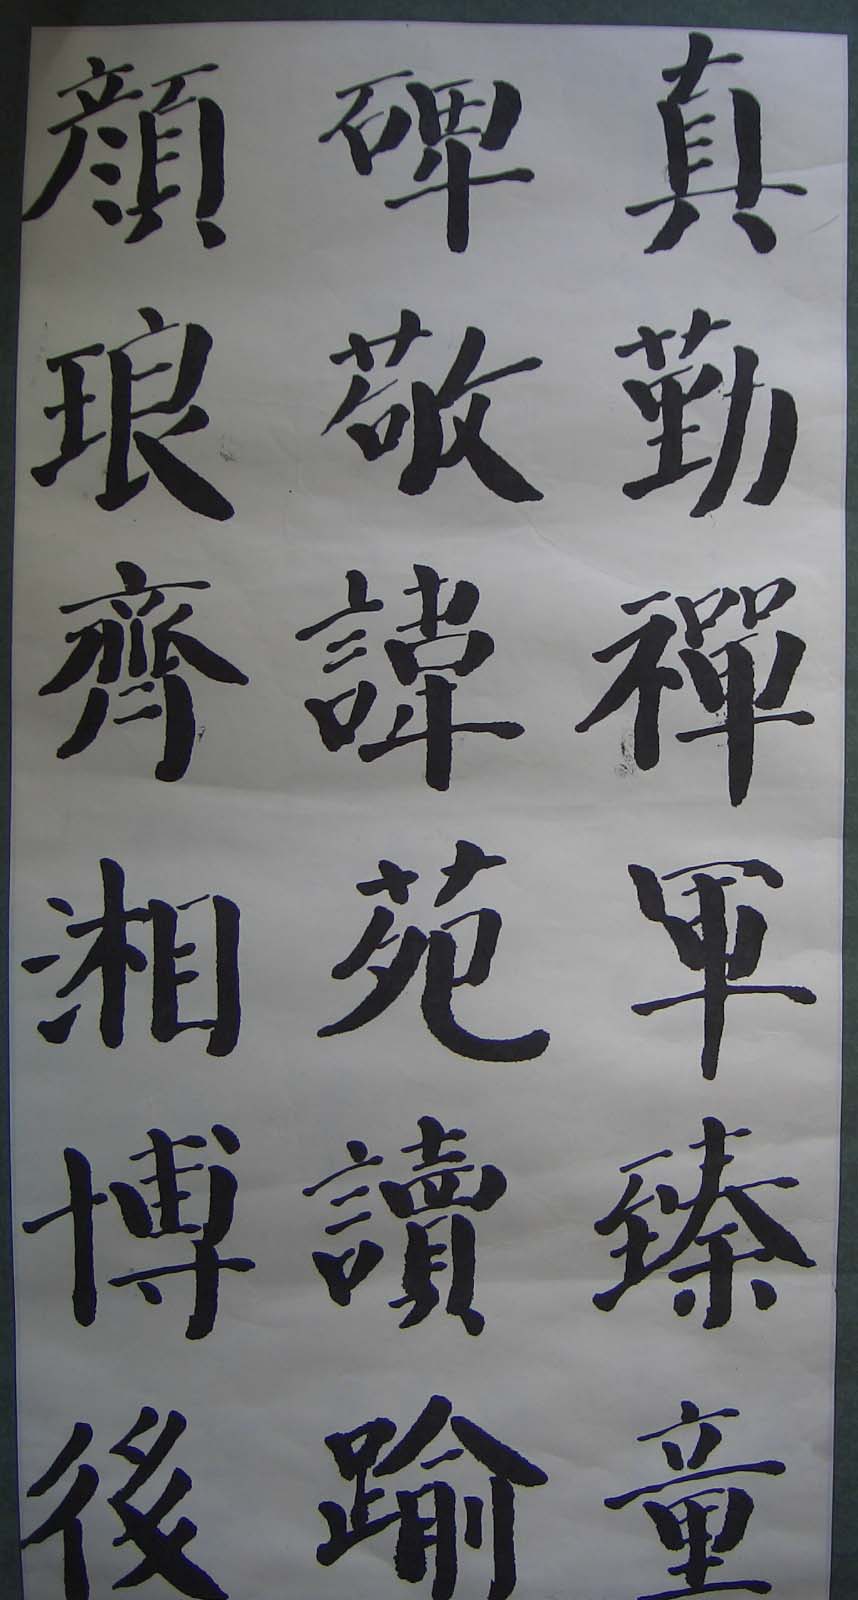 真勤禪軍臻童
碑敬諱苑讀踰
顏琅齊湘博後